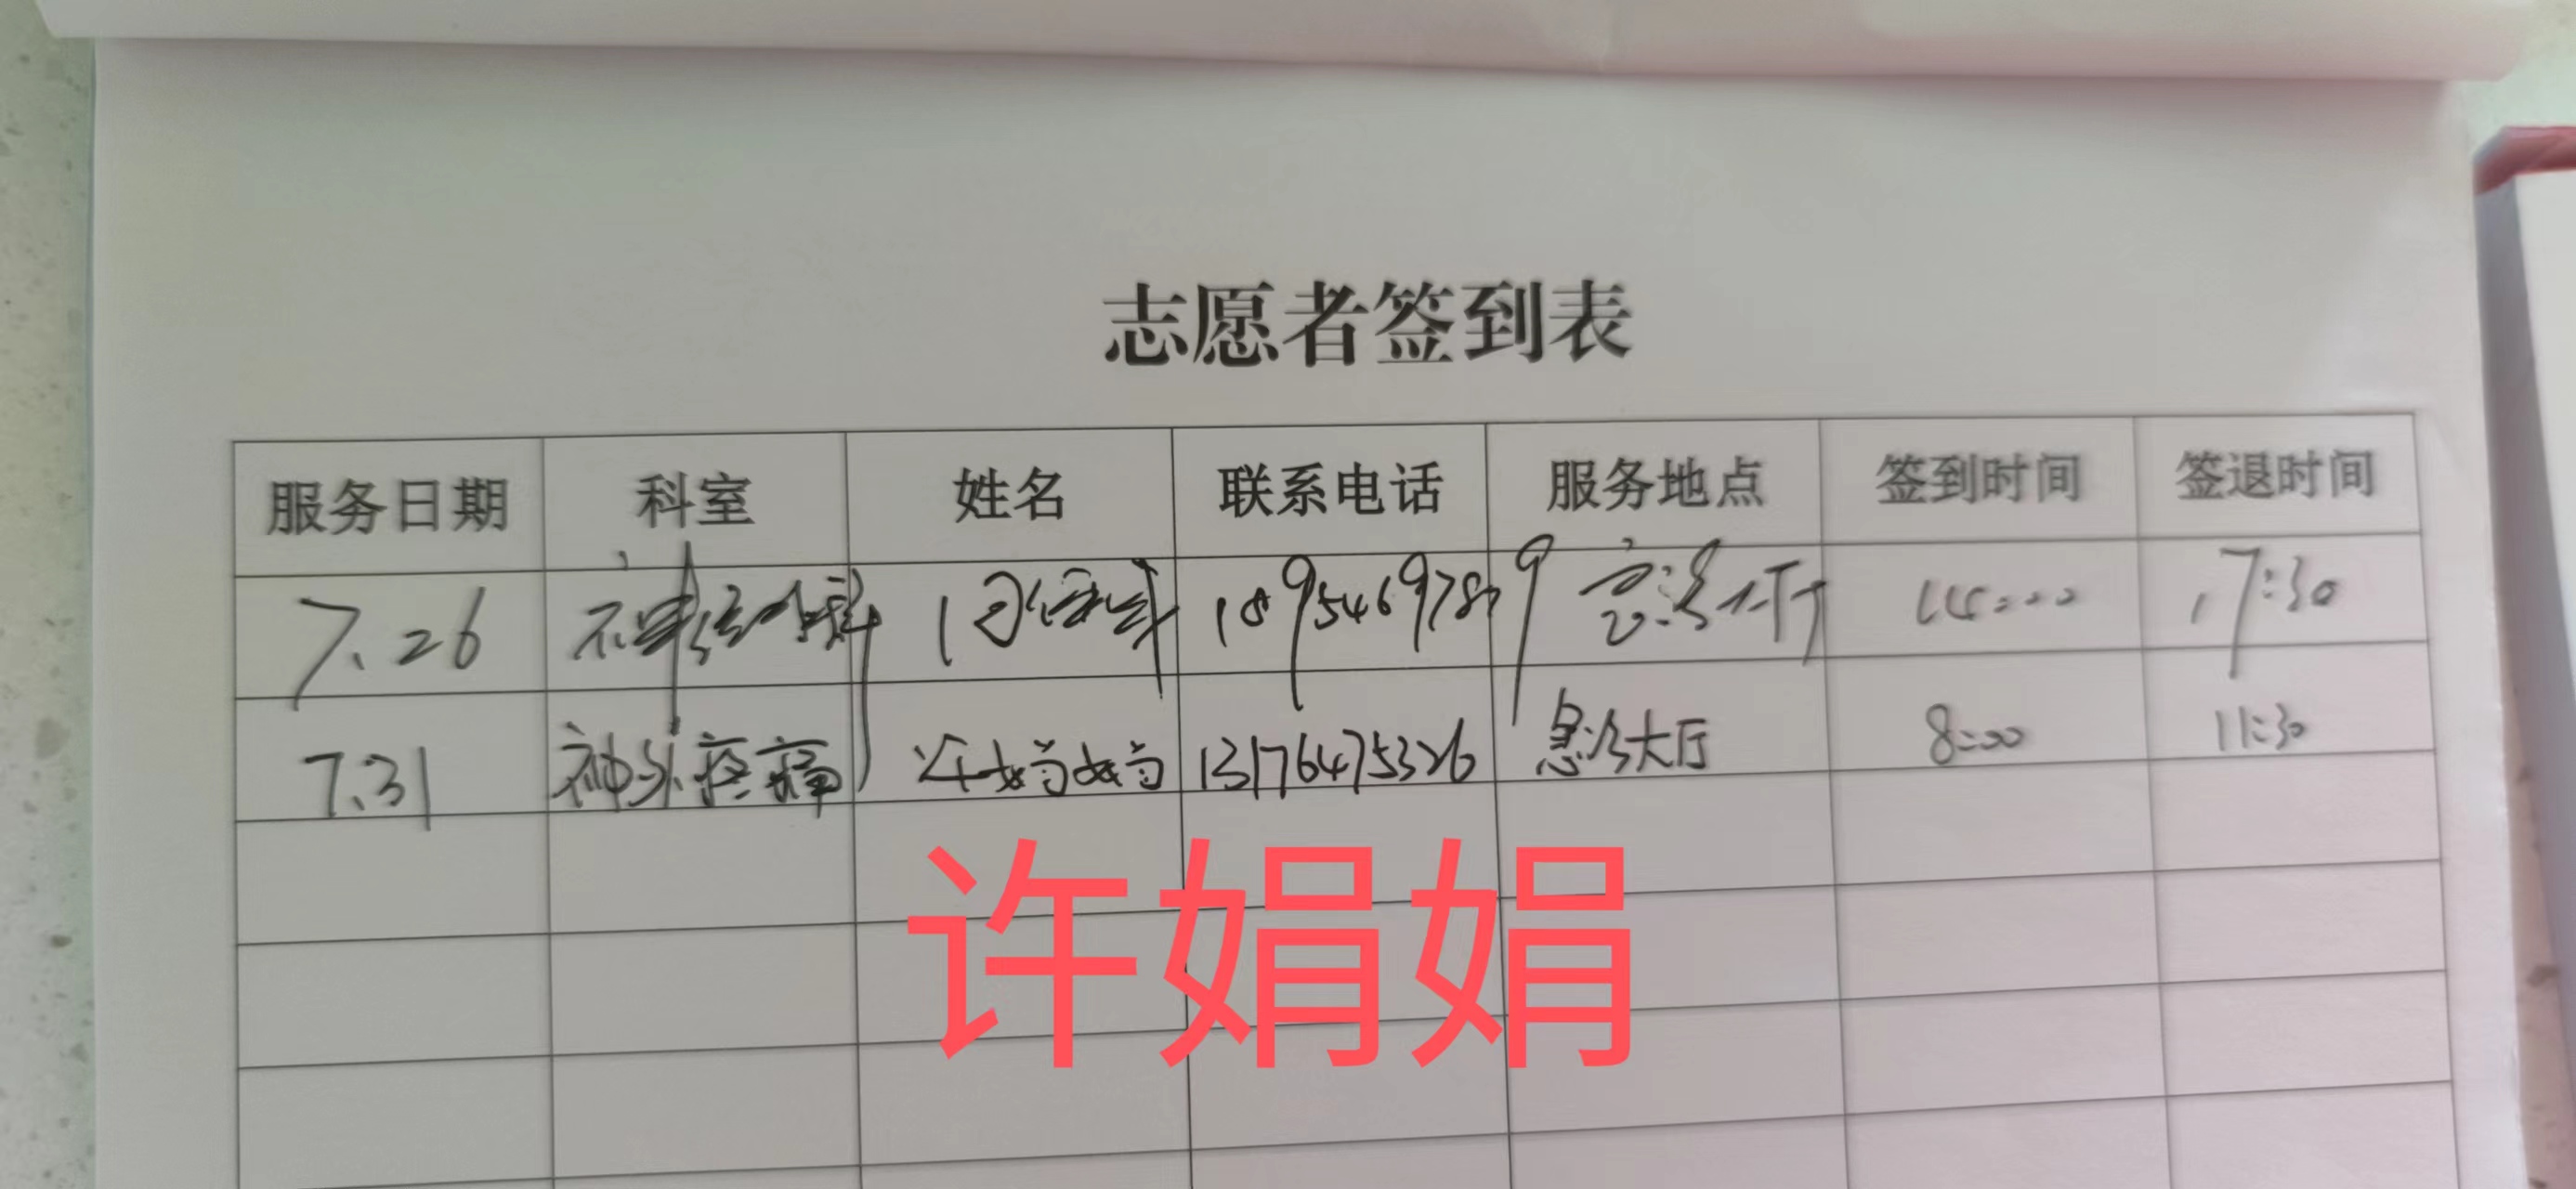 志愿者签到表
服务日期 科室 姓名 联系电话 服务地点 签到时间 签退时间
7.26 神经内科 急诊大厅 14:00 17:30
7.31 神外疼痛 许娟娟 13176475326 急诊大厅 8:00 11:30
许娟娟